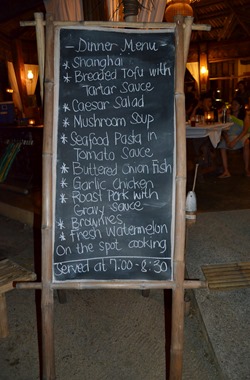 - Dinner Menu -
* Shanghai
* Breaded Tofu with
Tartar Sauce
* Caesar Salad
* Mushroom Soup
* Seafood Pasta in
Tomato Sauce
* Buttered Onion Fish
* Garlic Chicken
* Roast Pork with
Gravy Sauce
* Brownies
* Fresh Watermelon
On the spot cooking
Served at 7:00 - 8:30